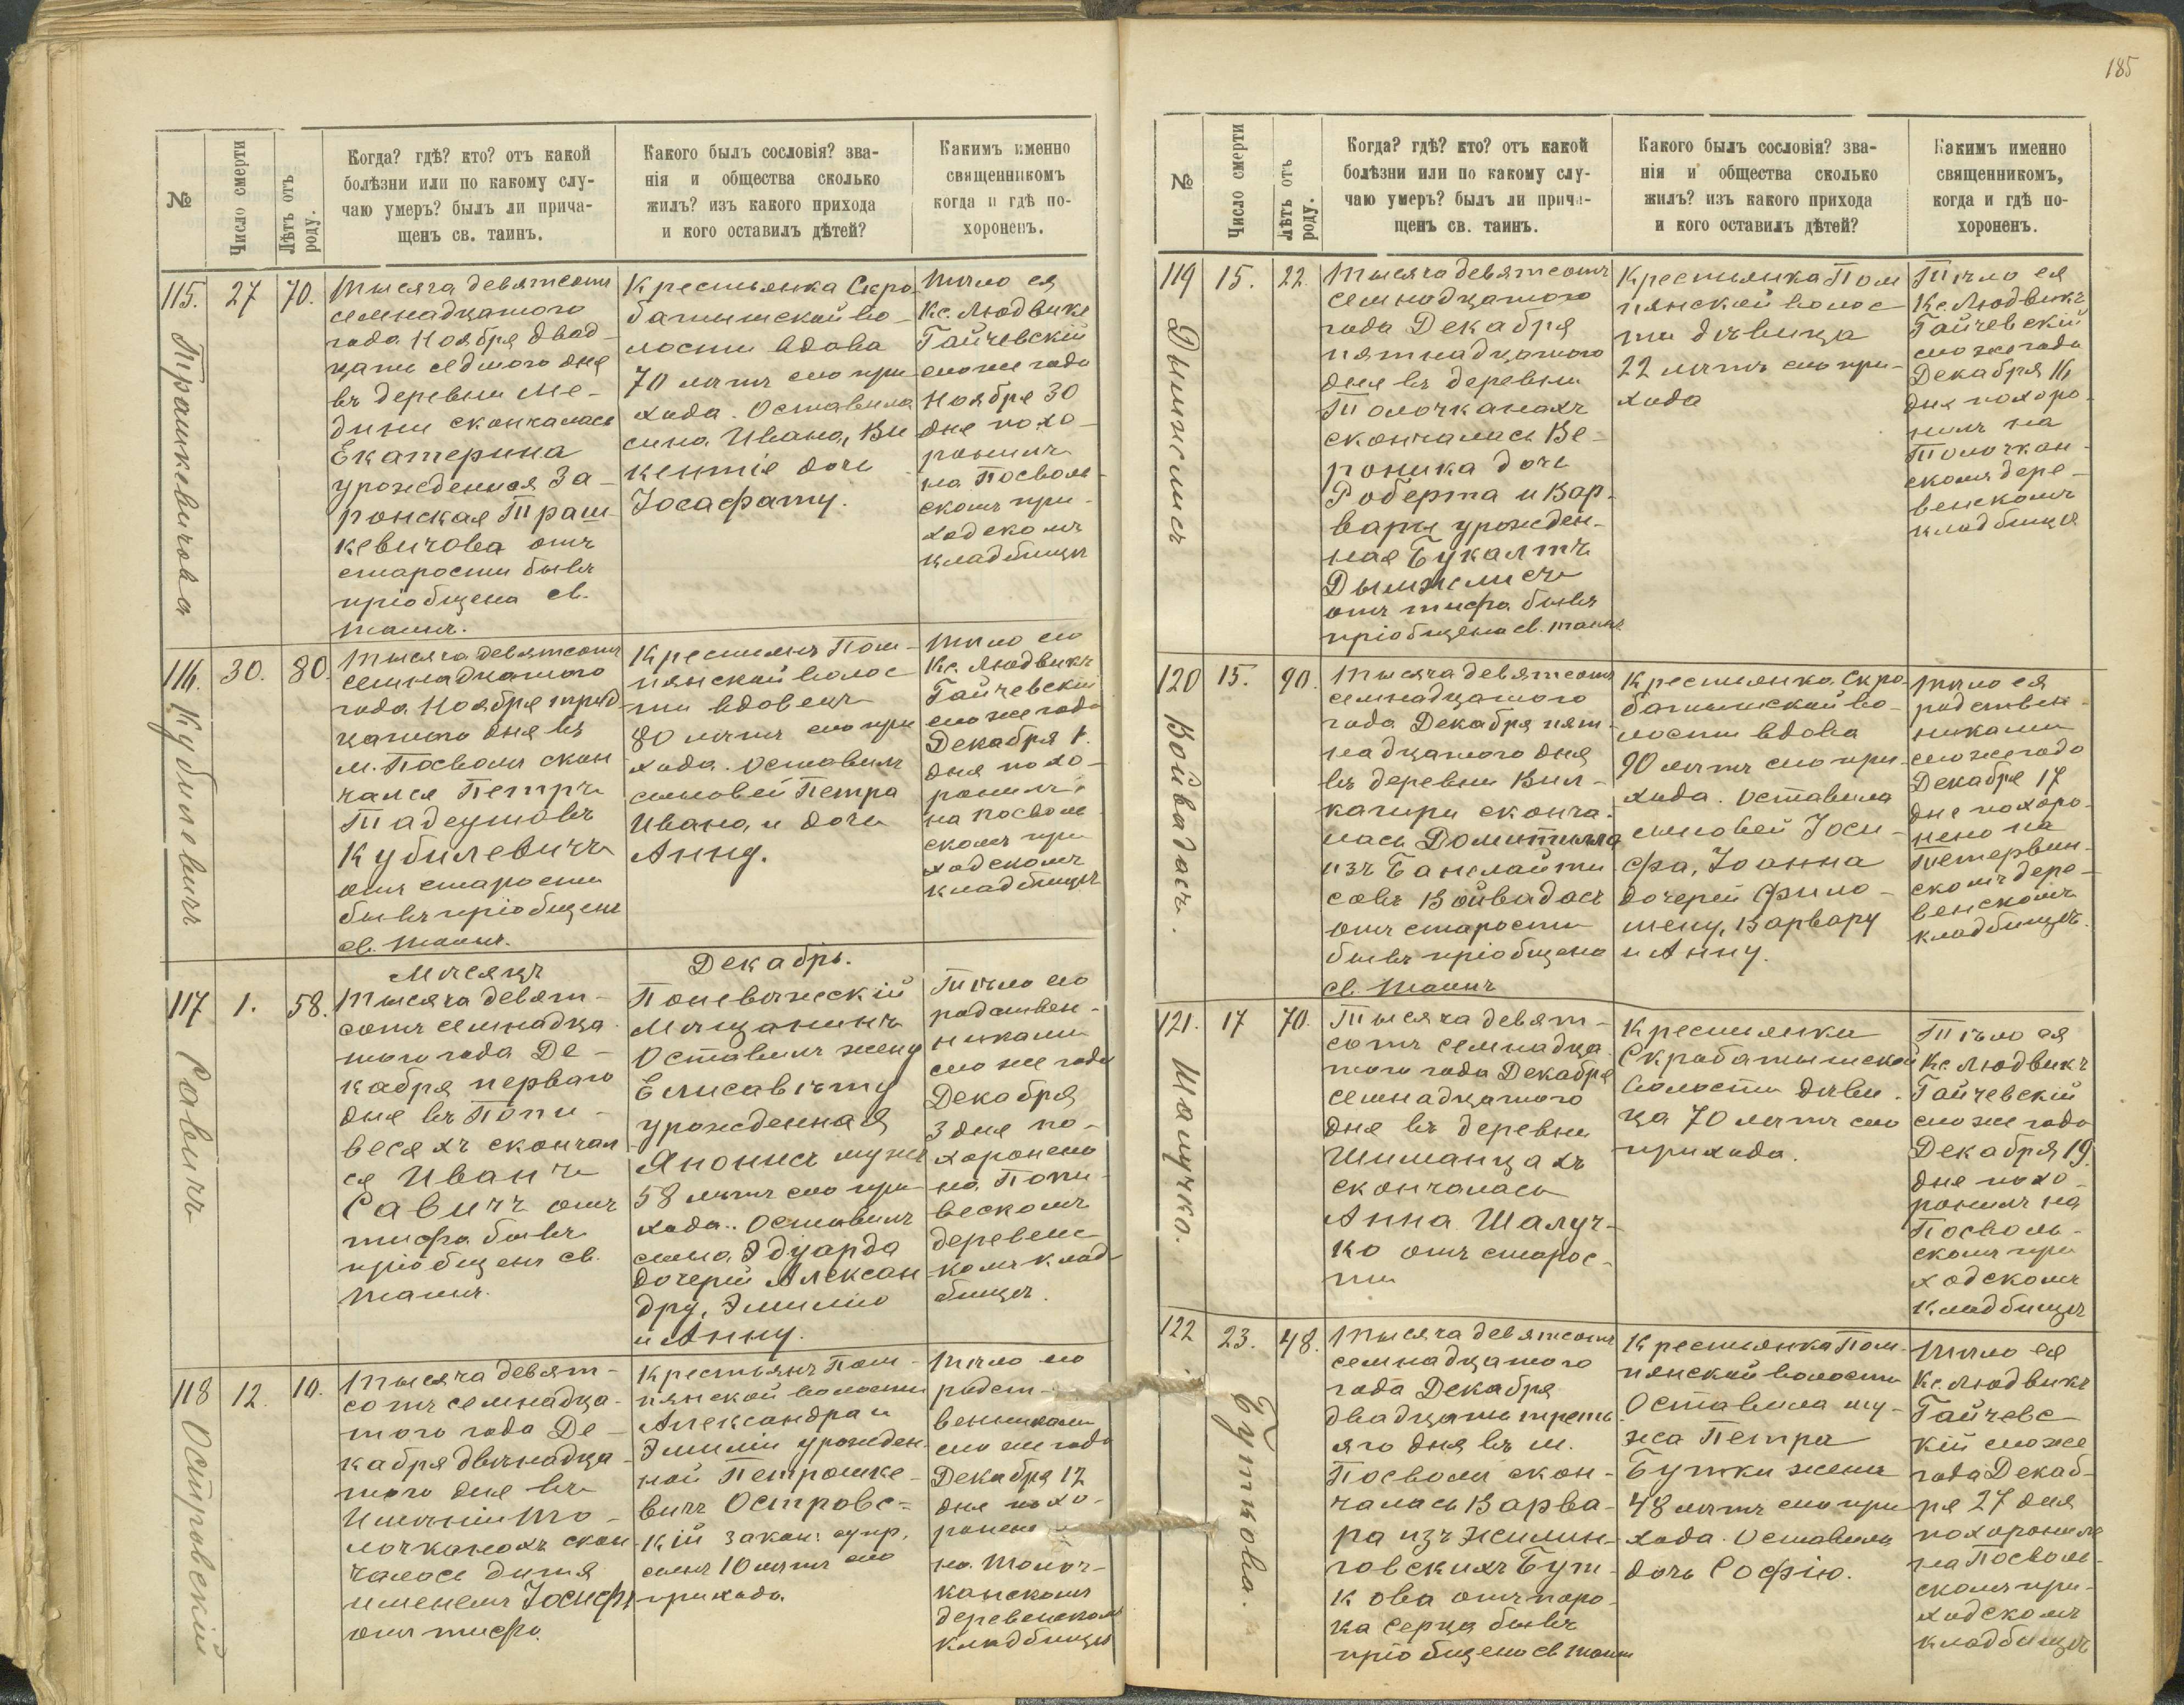 185
№
Число смерти
Лѣтъ отъ
роду.
Когда? гдѣ? кто? отъ какой
болѣзни или по какому слу-
чаю умеръ? былъ ли прича-
щенъ св. таинъ.
Какого былъ сословія? зва-
нія и общества сколько
жилъ? изъ какого прихода
и кого оставилъ дѣтей?
Какимъ именно
священникомъ
когда и гдѣ по-
хороненъ.
115.
Трашкевичова
27
70.
Тысяча девятсотъ
семнадцатого
года Ноября двад-
цать седмого дня
въ деревни Ме-
дини скончалась
Екатерина
урожденная За-
ронская Траш
кевичова отъ
старости бывъ
пріобщена св.
таинъ.
Крестьянка Скро-
батышской во-
лости вдова
70 лѣтъ сего при
хода. Оставила
сына Ивана, Ви
кентія дочь
Іосафату.
Тѣло ея
Кс. Людвикъ
Гайчевскій
сего же года
Ноября 30
дня похо-
ронилъ
на Посволь-
скомъ при-
ходскомъ
кладбищѣ
116.
Кубилевичъ
30.
80.
Тысяча девятсотъ
семнадцатого
года Ноября трид-
цатого дня въ
м. Посволи скон
чался Петръ
Тадеушовъ
Кубилевичъ
отъ старости
бывъ пріобщенъ
св. таинъ.
Крестьянъ Пом-
пянской волос
ти вдовецъ
80 лѣтъ сего при
хода. Оставилъ
сыновей Петра
Ивана, и дочь
Анну.
Тѣло его
Кс. Людвикъ
Гайчевскій
сего же года
Декабря 1.
дня похо-
ронилъ
на Посволь
скомъ при
ходскомъ
кладбищѣ
Мѣсяцъ
Декабрь.
117
Савичъ
1.
58.
Тысяча девят-
сотъ семнадца
того года Де-
кабря перваго
дня въ Попи-
весяхъ скончал
ся Иванъ
Савичъ отъ
тифа бывъ
пріобщенъ св.
таинъ.
Поневѣжскій
Мѣщанинъ
Оставилъ жену
Елисавѣту
урожденная
Янонисъ мужъ
58 лѣтъ сего при
хода. Оставилъ
сына Эдуарда
дочерей Алексан
дру, Эмилію
и Анну.
Тѣло его
родствен-
никами
сего же года
Декабря
3 дня по-
хоронено
на Попи-
вескомъ
деревенс
комъ клад-
бищѣ.
118
Островскій
12.
10.
Тысяча девят-
сотъ семнадца-
того года Де-
кабря двѣнадца
того дня въ
Имѣніи То-
лочканахъ скон
чалось дитя
именемъ Іосифъ
отъ тифа.
Крестьянъ Пом-
пянской волости
Александра и
Эмиліи урожден-
ной Петрошке-
вичъ Островс-
кій закон. супр.
сынъ 10 лѣтъ сего
прихода.
Тѣло его
родст-
венниками
сего же года
Декабря 12
дня похо-
ронено
на Толоч-
канскомъ
деревенскомъ
кладбищѣ
№
Число смерти
Лѣтъ отъ
роду.
Когда? гдѣ? кто? отъ какой
болѣзни или по какому слу-
чаю умеръ? былъ ли прича-
щенъ св. таинъ.
Какого былъ сословія? зва-
нія и общества сколько
жилъ? изъ какого прихода
и кого оставилъ дѣтей?
Какимъ именно
священникомъ,
когда и гдѣ по-
хороненъ.
119
Дымжлисъ
15.
22.
Тысяча девятсотъ
семнадцатого
года Декабря
пятнадцатого
дня въ деревни
Толочканахъ
скончалась Ве-
роника дочь
Роберта и Вар-
вары урожден-
ная Букалтъ
Дымжлисъ
отъ тифа бывъ
пріобщена св. таинъ
Крестьянка Пом
пянской волос-
ти дѣвица
22 лѣтъ сего при-
хода
Тѣло ея
Кс. Людвикъ
Гайчевскій
сего же года
Декабря 16
дня похоро-
нилъ на
Толочкан-
скомъ дере-
венскомъ
кладбищѣ
120
Войвадасъ.
15.
90.
Тысяча девятсотъ
семнадцатого
года Декабря пят-
надцатого дня
въ деревни Вил-
качири сконча-
лась Домитилла
изъ Банелайти
совъ Войвадасъ
отъ старости
бывъ пріобщена
св. таинъ
Крестьянка Скро-
батышской во-
лости вдова
90 лѣтъ сего при-
хода. Оставила
сыновей Іоси-
фа, Іоанна
дочерей Фило-
мену, Варвару
и Анну.
Тѣло ея
родствен-
никами
сего же года
Декабря 17
дня похоро-
нено на
Тетервин-
скомъ дере-
венскомъ
кладбищѣ.
121.
Шалучко.
17
70.
Тысяча девят-
сотъ семнадца
того года Декабря
семнадцатого
дня въ деревни
Шиманцахъ
скончалась
Анна Шалуч-
ко отъ старос-
ти
Крестьянка
Скробатышской
волости дѣви-
ца 70 лѣтъ сего
прихода.
Тѣло ея
Кс. Людвикъ
Гайчевскій
сего же года
Декабря 19.
дня похо-
ронилъ на
Посволь-
скомъ при
ходскомъ
кладбищѣ
122.
Буткова.
23.
48.
Тысяча девятсотъ
семнадцатого
года Декабря
двадцать треть
яго дня въ м.
Посволи скон-
чалась Варва-
ра изъ Жилин-
говскихъ Бут-
кова отъ поро-
ка серца бывъ
пріобщена св таинъ
Крестьянка Пом-
пянской волости
Оставила му-
жа Петра
Бутки жена
48 лѣтъ сего при
хода. Оставила
дочь Софію.
Тѣло ея
Кс. Людвикъ
Гайчевс-
кій сего же
года Декаб-
ря 27 дня
похоронилъ
на Посволь-
скомъ при-
ходскомъ
кладбищѣ